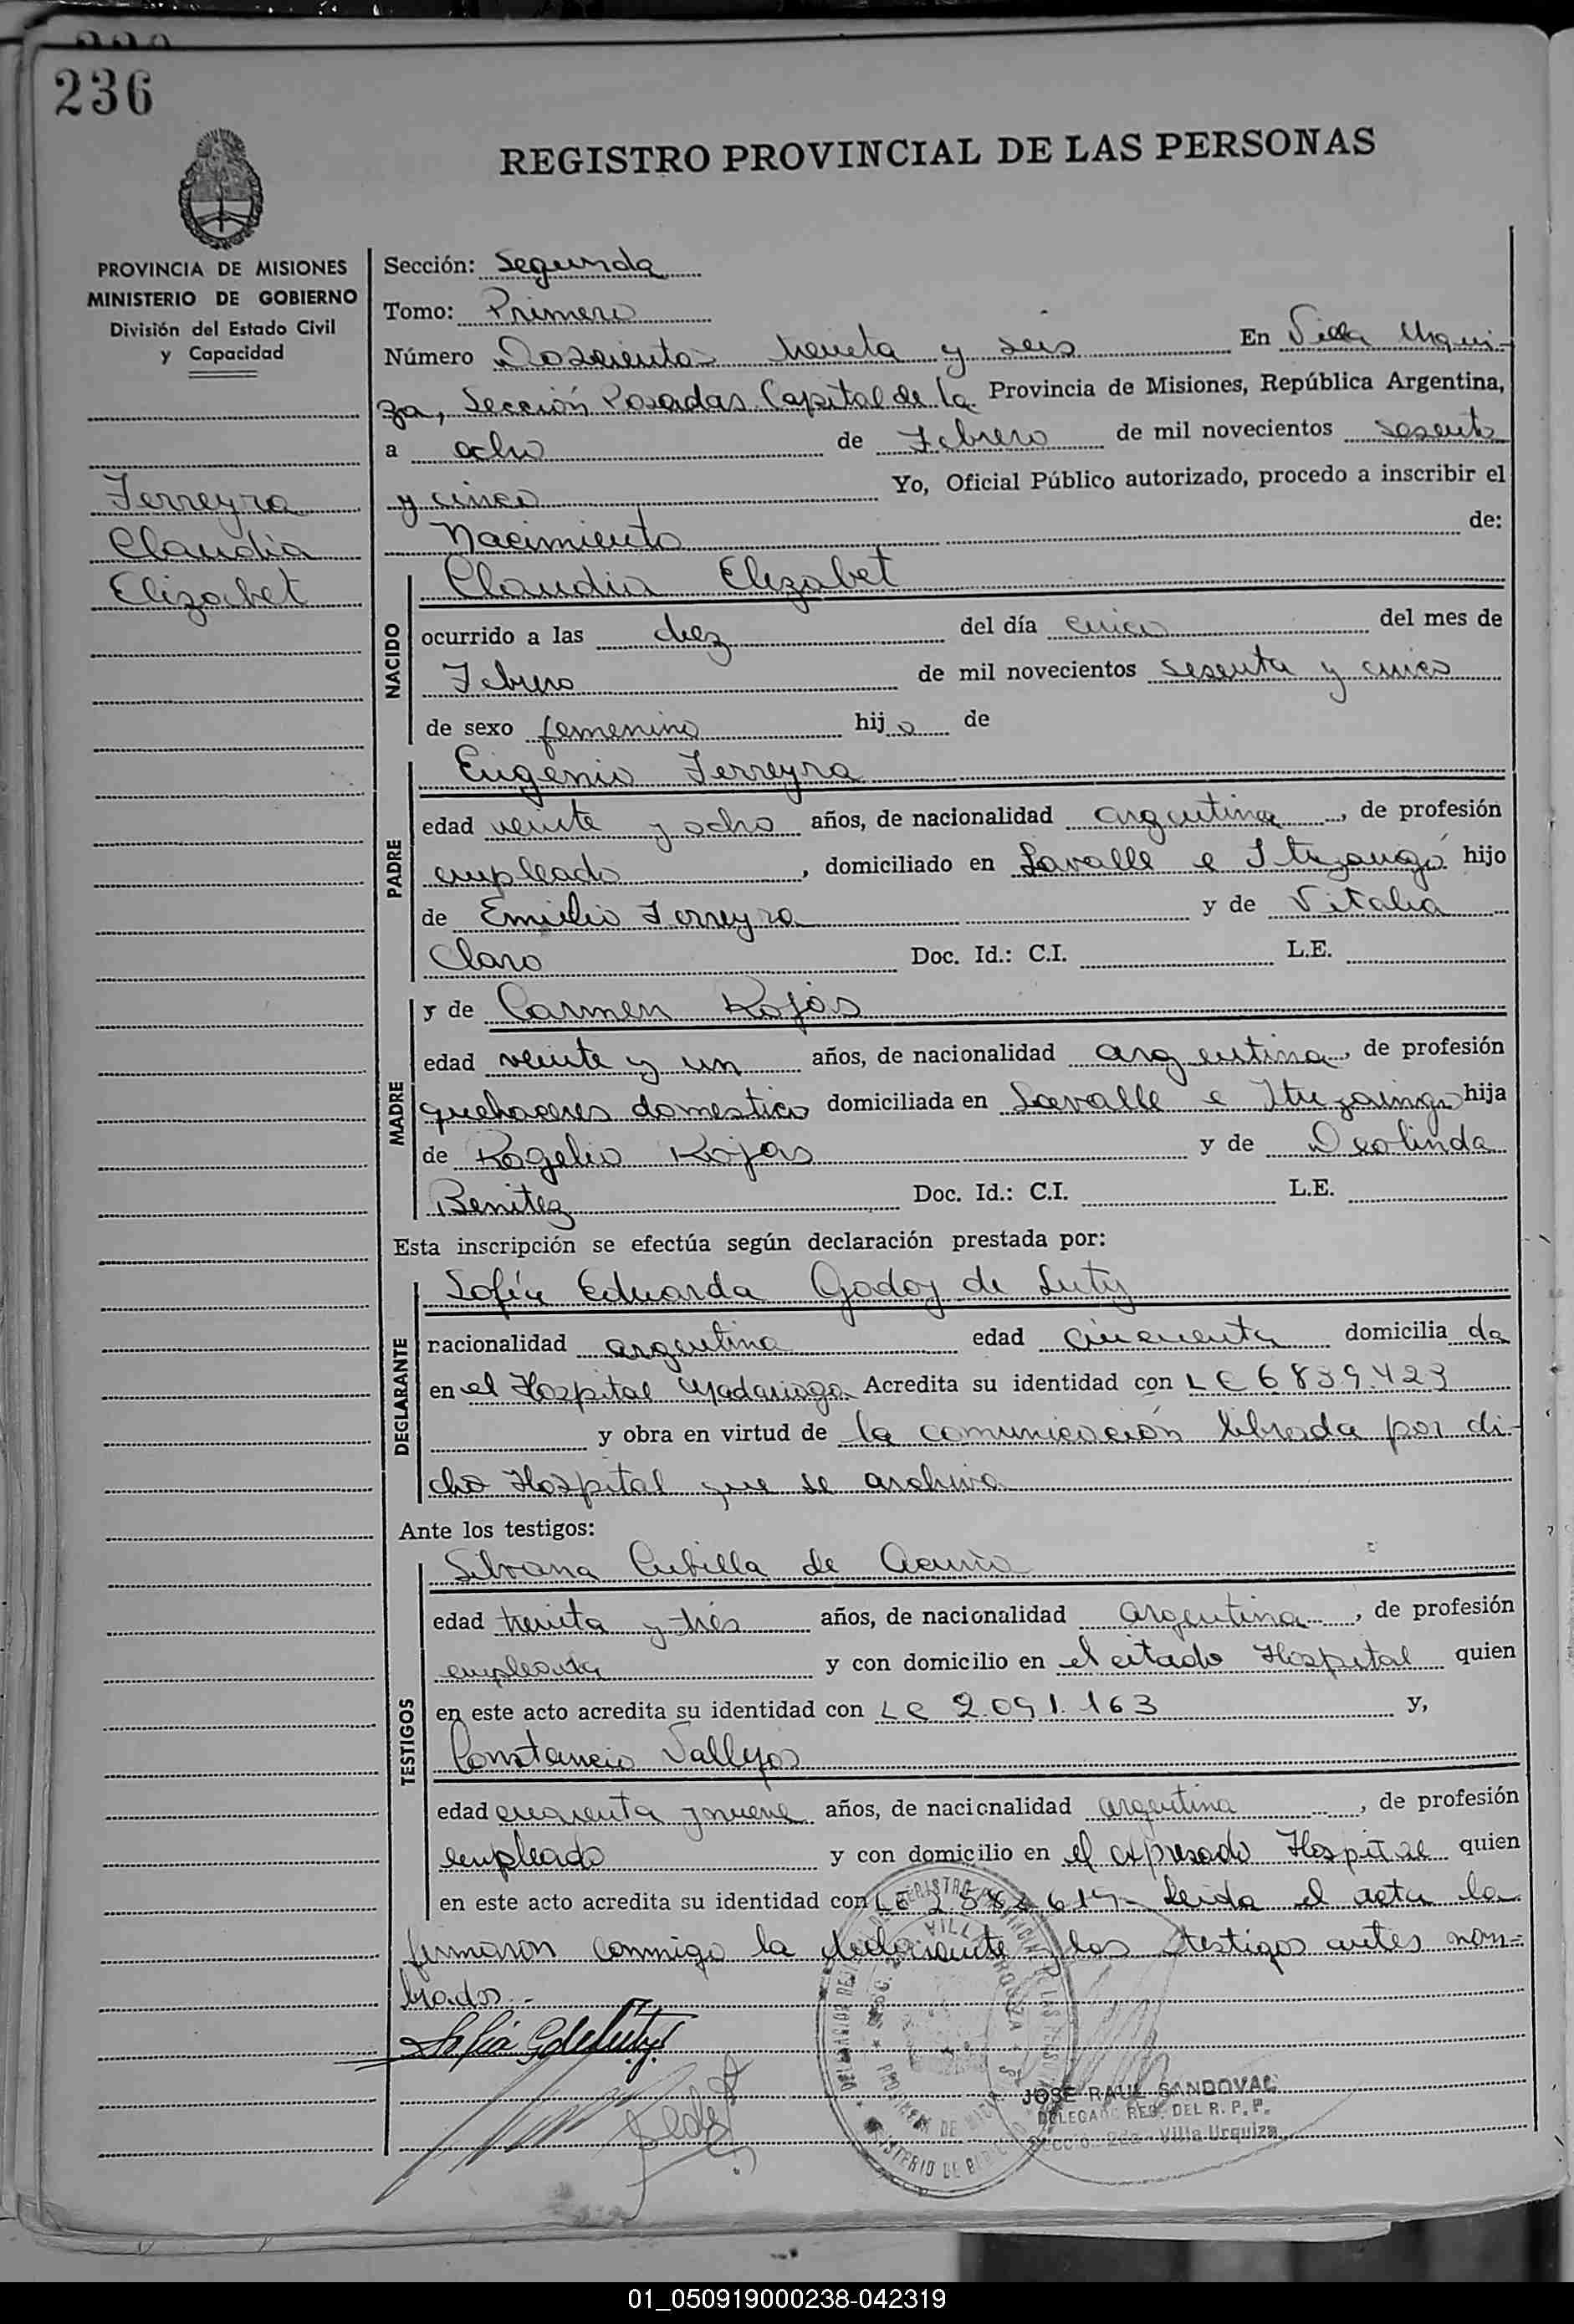 236
REGISTRO PROVINCIAL DE LAS PERSONAS
PROVINCIA DE MISIONES
MINISTERIO DE GOBIERNO
División del Estado Civil
y Capacidad
Ferreyra
Claudia
Elizabet
Sección: Segunda
Tomo: Primero
Número Doscientos treinta y seis En Villa Urqui-
za, Sección Posadas Capital de la Provincia de Misiones, República Argentina,
a ocho de Febrero de mil novecientos sesenta
y cinco Yo, Oficial Público autorizado, procedo a inscribir el
Nacimiento de:
NACIDO
Claudia Elizabet
ocurrido a las diez del día cinco del mes de
Febrero de mil novecientos sesenta y cinco
de sexo femenino hijo de
PADRE
Eugenio Ferreyra
edad veinte y ocho años, de nacionalidad argentina, de profesión
empleado, domiciliado en Lavalle e Ituzaingó hijo
de Emilio Ferreyra y de Vitalia
Claro Doc. Id.: C.I. L.E.
MADRE
y de Carmen Rojas
edad veinte y un años, de nacionalidad argentina, de profesión
quehaceres domestico domiciliada en Lavalle e Ituzaingo hija
de Rogelio Rojas y de Deolinda
Benitez Doc. Id.: C.I. L.E.
Esta inscripción se efectúa según declaración prestada por:
DECLARANTE
Sofía Eduarda Godoy de Luty
nacionalidad argentina edad cincuenta domicilia da
en el Hospital Madariaga Acredita su identidad con LC 6839.423
y obra en virtud de la comunicación librada por di-
cho Hospital que se archiva
Ante los testigos:
TESTIGOS
Silvana Cubilla de Acuña
edad treinta y tres años, de nacionalidad argentina, de profesión
empleada y con domicilio en el citado Hospital quien
en este acto acredita su identidad con LC 2.091.163 y,
Constancio Vallejos
edad cuarenta y nueve años, de nacionalidad argentina, de profesión
empleado y con domicilio en el expresado Hospital quien
en este acto acredita su identidad con LE Leida el acta la
firmaron conmigo la declarante y los testigos antes nom=
brados.-
JOSE RAUL SANDOVAL
DELEGADO REG. DEL R. P. P.
Sección 2da - Villa Urquiza
01_050919000238-042319